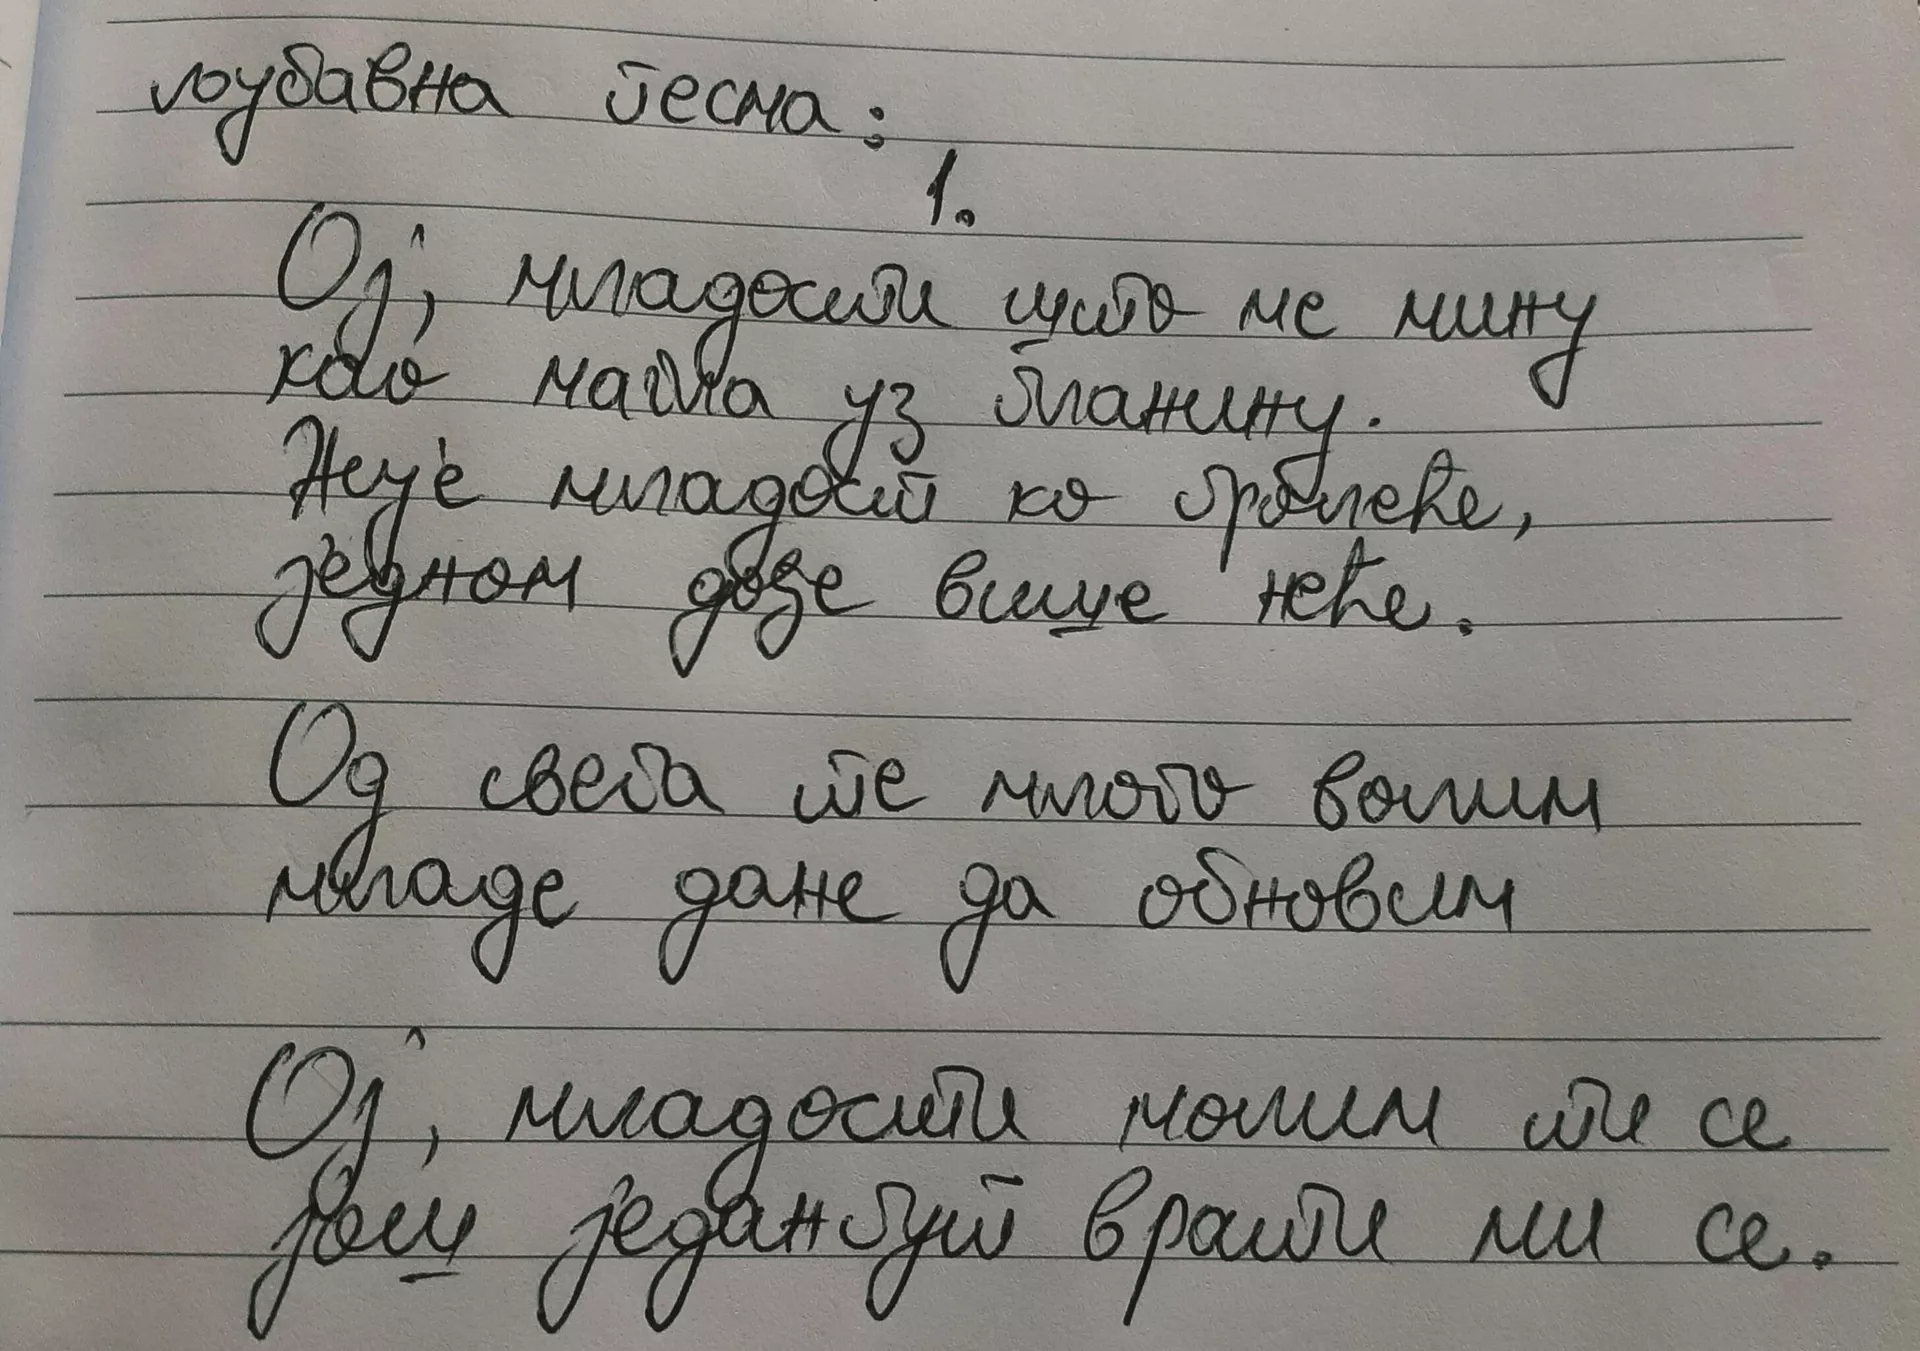 љубавна песма:
1.
Ој, младости што ме мину
као магла уз планину.
Није младост ко пролеће,
једном дође више неће.
Од свега те много волим
младе дане да обновим
Ој, младости молим ти се
још једанпут врати ми се.